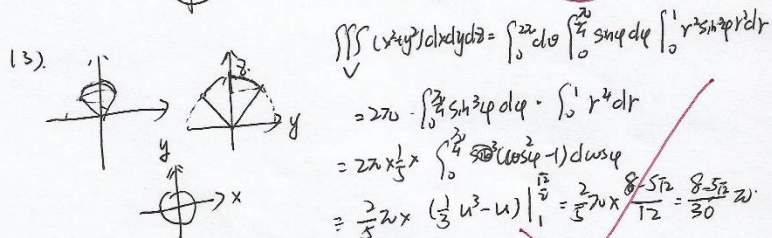 (3).
z
y
y
x
∭_V (x²+y²)dxdydz = ∫_0^{2π} dθ ∫_0^{π/4} sinφ dφ ∫_0^1 r² sin²φ r² dr
= 2π · ∫_0^{π/4} sin³φ dφ · ∫_0^1 r⁴ dr
= 2π × 1/5 × ∫_0^{π/4} (cos²φ - 1) dcosφ
= 2/5 π × (1/3 u³ - u) |_1^{√2/2} = 2/5 π × (8-5√2)/12 = (8-5√2)/30 π.